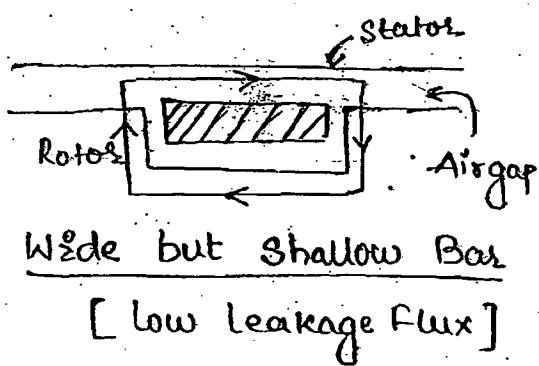 Stator
Rotor
Airgap
Wide but Shallow Bar
[ low leakage Flux ]